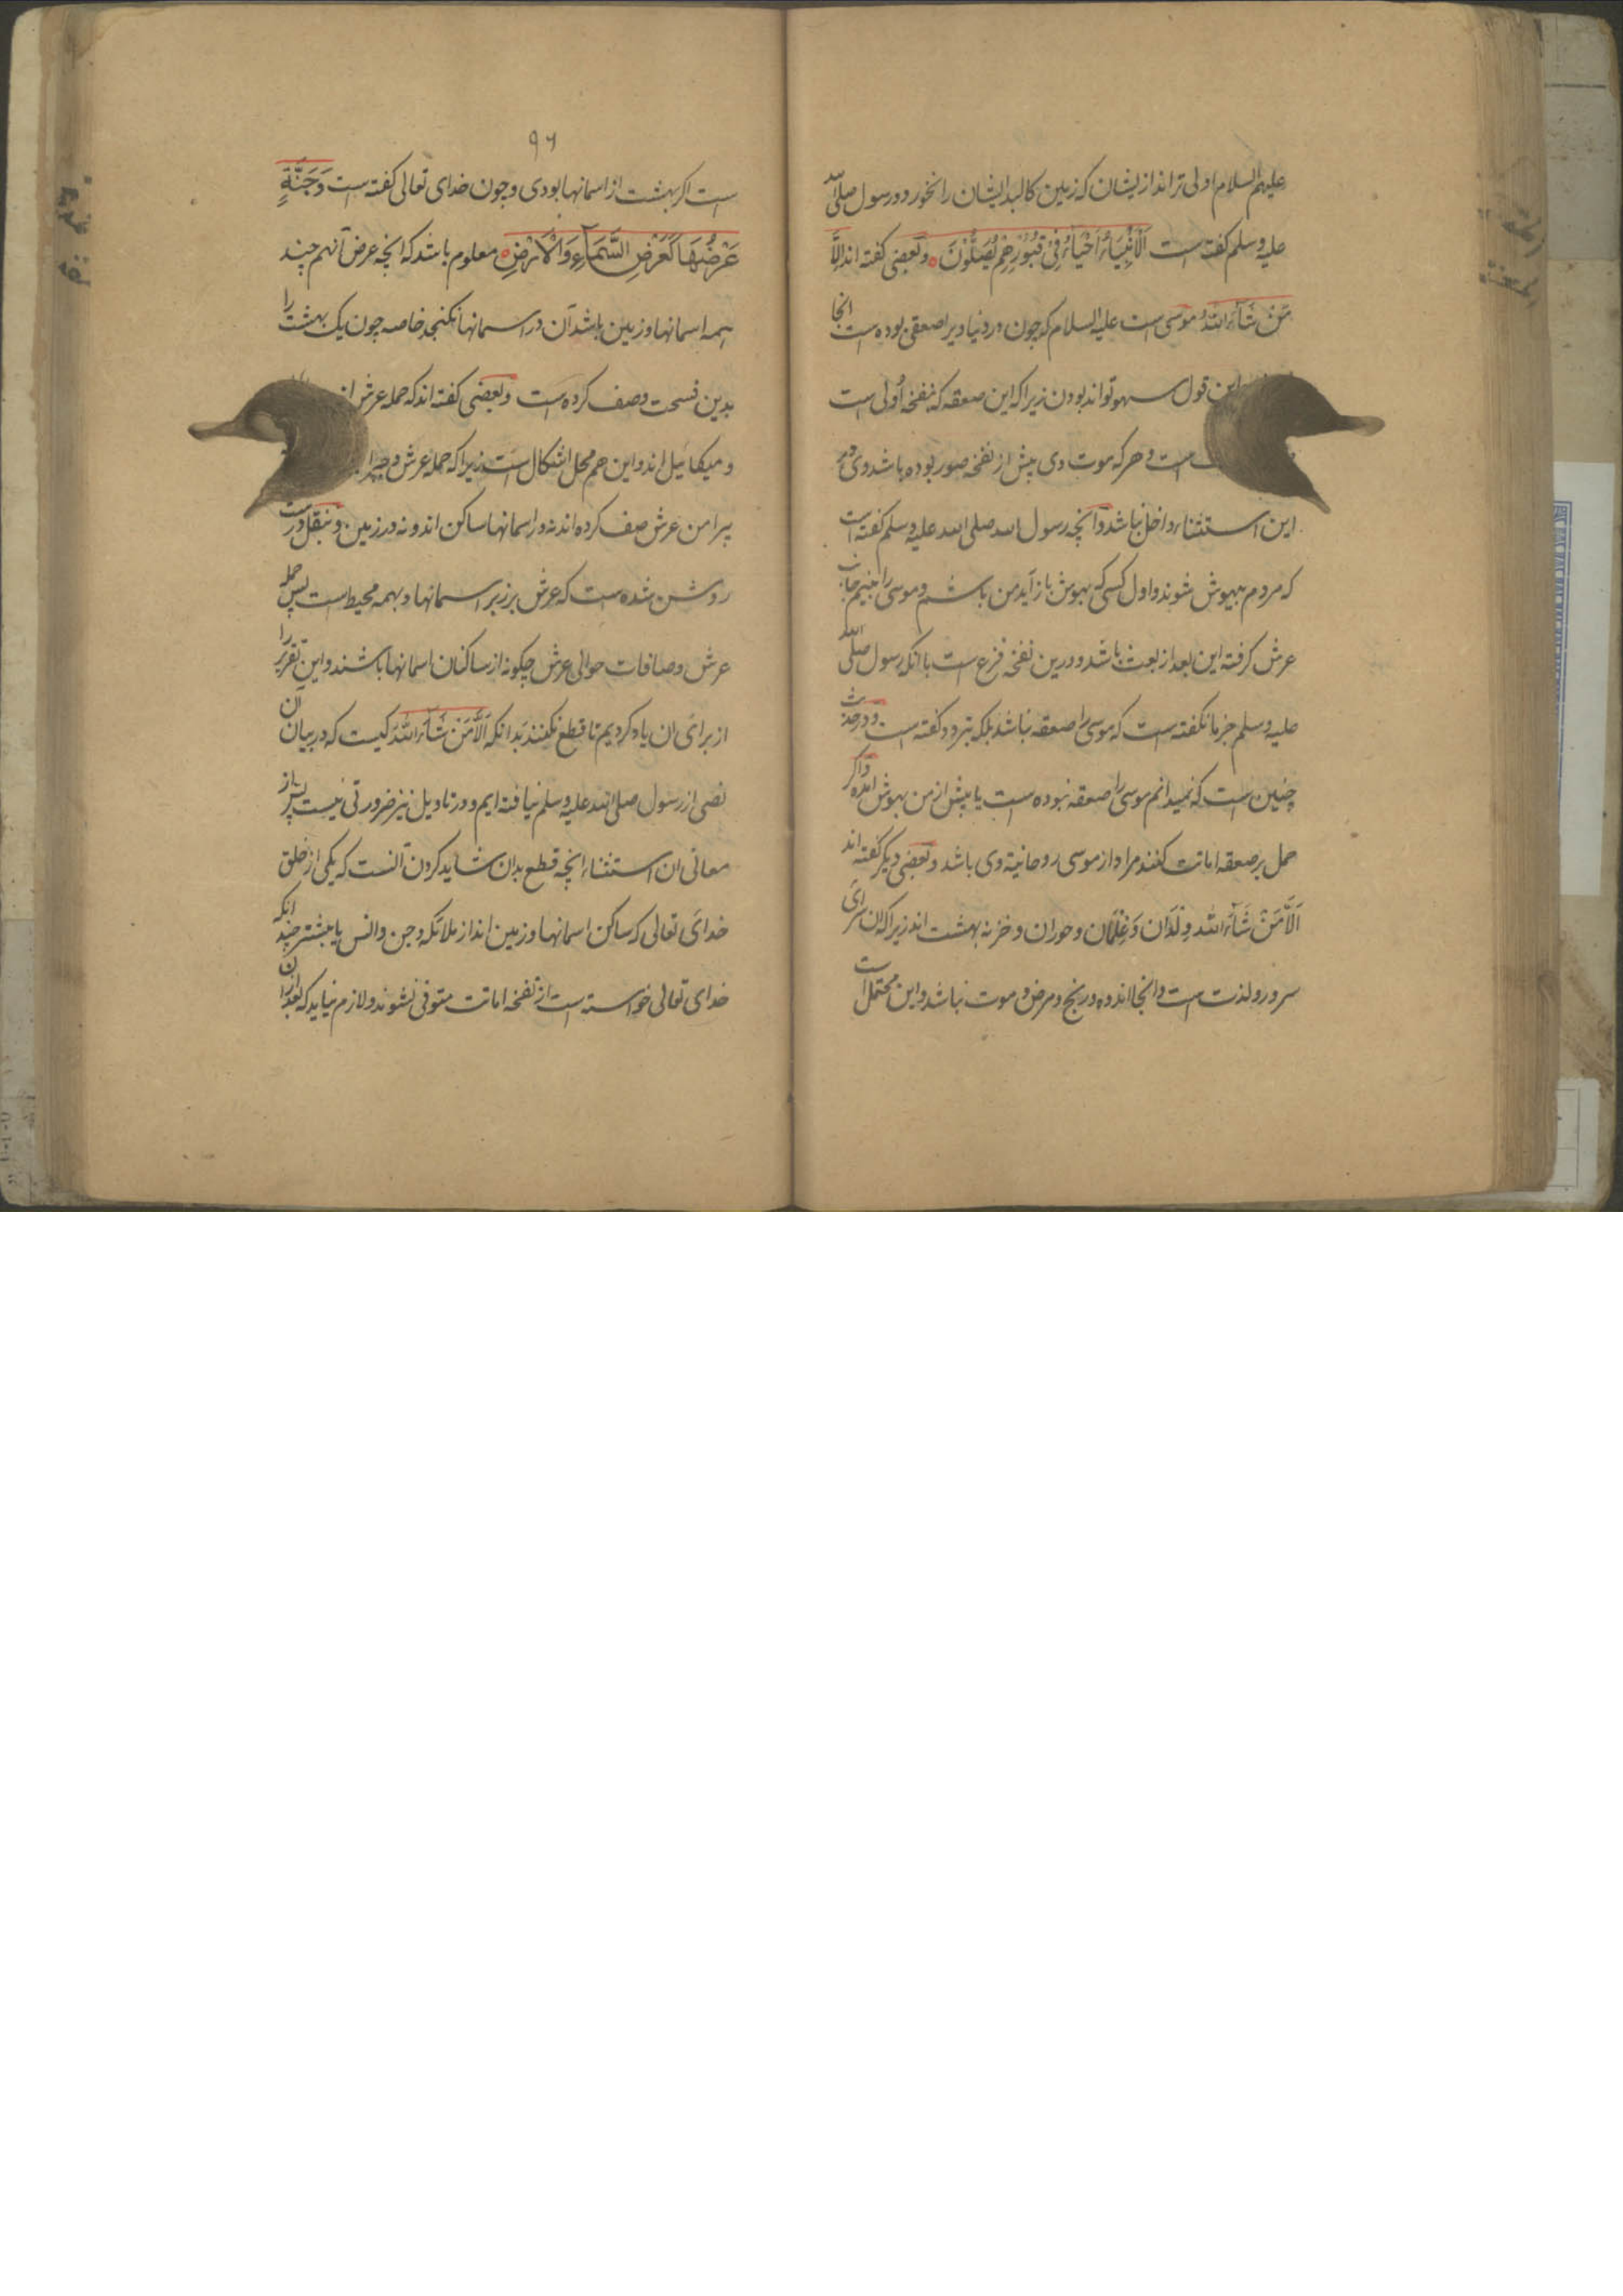 علیهم السلام اولی تراند ازیشان که زمین کالبد ایشان را نخورد و رسول صلی الله
علیه وسلم کفته است اَلْاَنْبِیَاءُ اَحْیَاءٌ فِیْ قُبُوْرِهِمْ یُصَلُّوْنَ ه وبعضی کفته اند اِلَّا
مَنْ شَآءَ اللّٰهُ موسی است علیه السلام که چون در دنیا ویرا صعقی بوده است انجا
این قول سهو تواند بودن زیرا که این صعقه که نفخه اُولی است
است و هر که موت وی پیش از نفخه صور بوده باشد وی در
این استثناء داخل نباشد وآنچه رسول الله صلی الله علیه وسلم کفته است
که مردم بیهوش شوند و اول کسی که بهوش باز آید من باشم و موسی را بینم جانب
عرش کرفته این بعد از بعث باشد و درین نفخه فزع است با انکه رسول صلی الله
علیه وسلم جزما نکفته است که موسی را صعقه نباشد بلکه بتردد کفته است و در حدیث
چنین است که نمیدانم موسی را صعقه نبوده است یا پیش از من بهوش امده واکر
حمل بر صعقه اماتت کنند مراد از موسی روحانیة وی باشد وبعضی دیکر کفته اند
اَلَّا مَنْ شَآءَ اللّٰه وِلْدَان وَغِلْمَان و حوران و خزنه بهشت اند زیرا که ان سرای
سرور ولذت است وانجا اندوه و رنج و مرض و موت نباشد واین محتمل است
۹۶
است اکر بهشت از اسمانها بودی و چون خدای تعالی کفته است وَجَنَّةٍ
عَرْضُهَا کَعَرْضِ السَّمَآءِ وَالْاَرْضِ ه معلوم باشد که انچه عرض آنهم چند
همه اسمانها و زمین باشد آن در اسمانها نکنجد خاصه چون یک بهشت را
بدین فسحت وصف کرده است وبعضی کفته اند که حمله عرش اند
و میکائیل اند و این هم محل اشکال است زیرا که حمله عرش و
پیرامن عرش صف کرده اند نه در اسمانها ساکن اند و نه در زمین و بنقل درست
روشن شده است که عرش برزبر اسمانها و بهمه محیط است پس حمله
عرش و صافات حوالی عرش چکونه از ساکنان اسمانها باشند و این تقریر را
از برای ان یاد کردیم تا قطع نکنند بدانکه اَلَّا مَنْ شَآءَ اللّٰهُ کیست که در بیان آن
نصی از رسول صلی الله علیه وسلم نیافته ایم و در تاویل نیز ضرورتی نیست پس از
معانی ان استثناء انچه قطع بدان شاید کردن آنست که یکی از خلق
خدای تعالی که ساکن اسمانها و زمین اند از ملائکه و جن و انس یا بیشتر چند انکه
خدای تعالی خواسته است از نفخه اماتت متوفی نشوند و لازم نیاید که بعد از ان